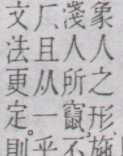 象人之形、施
淺人所竄、不
厂、且从一乎
文法更定。則